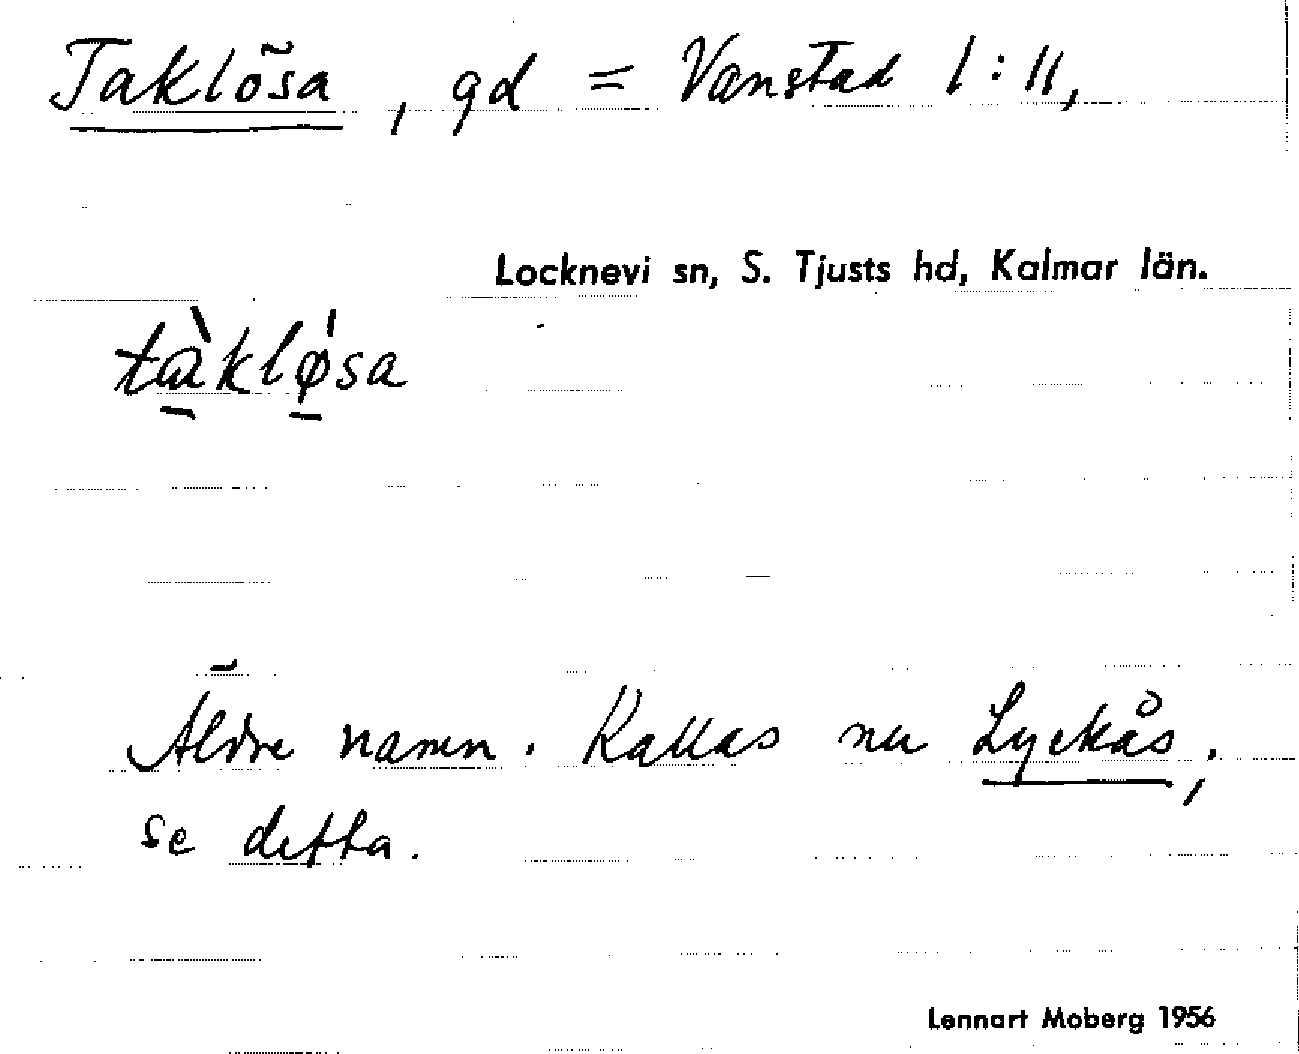 Taklösa, gd = Vanstad 1:11,
Locknevi sn, S. Tjusts hd, Kalmar län.
tàkløsa
Äldre namn. Kallas nu Lyckås;
se detta.
Lennart Moberg 1956